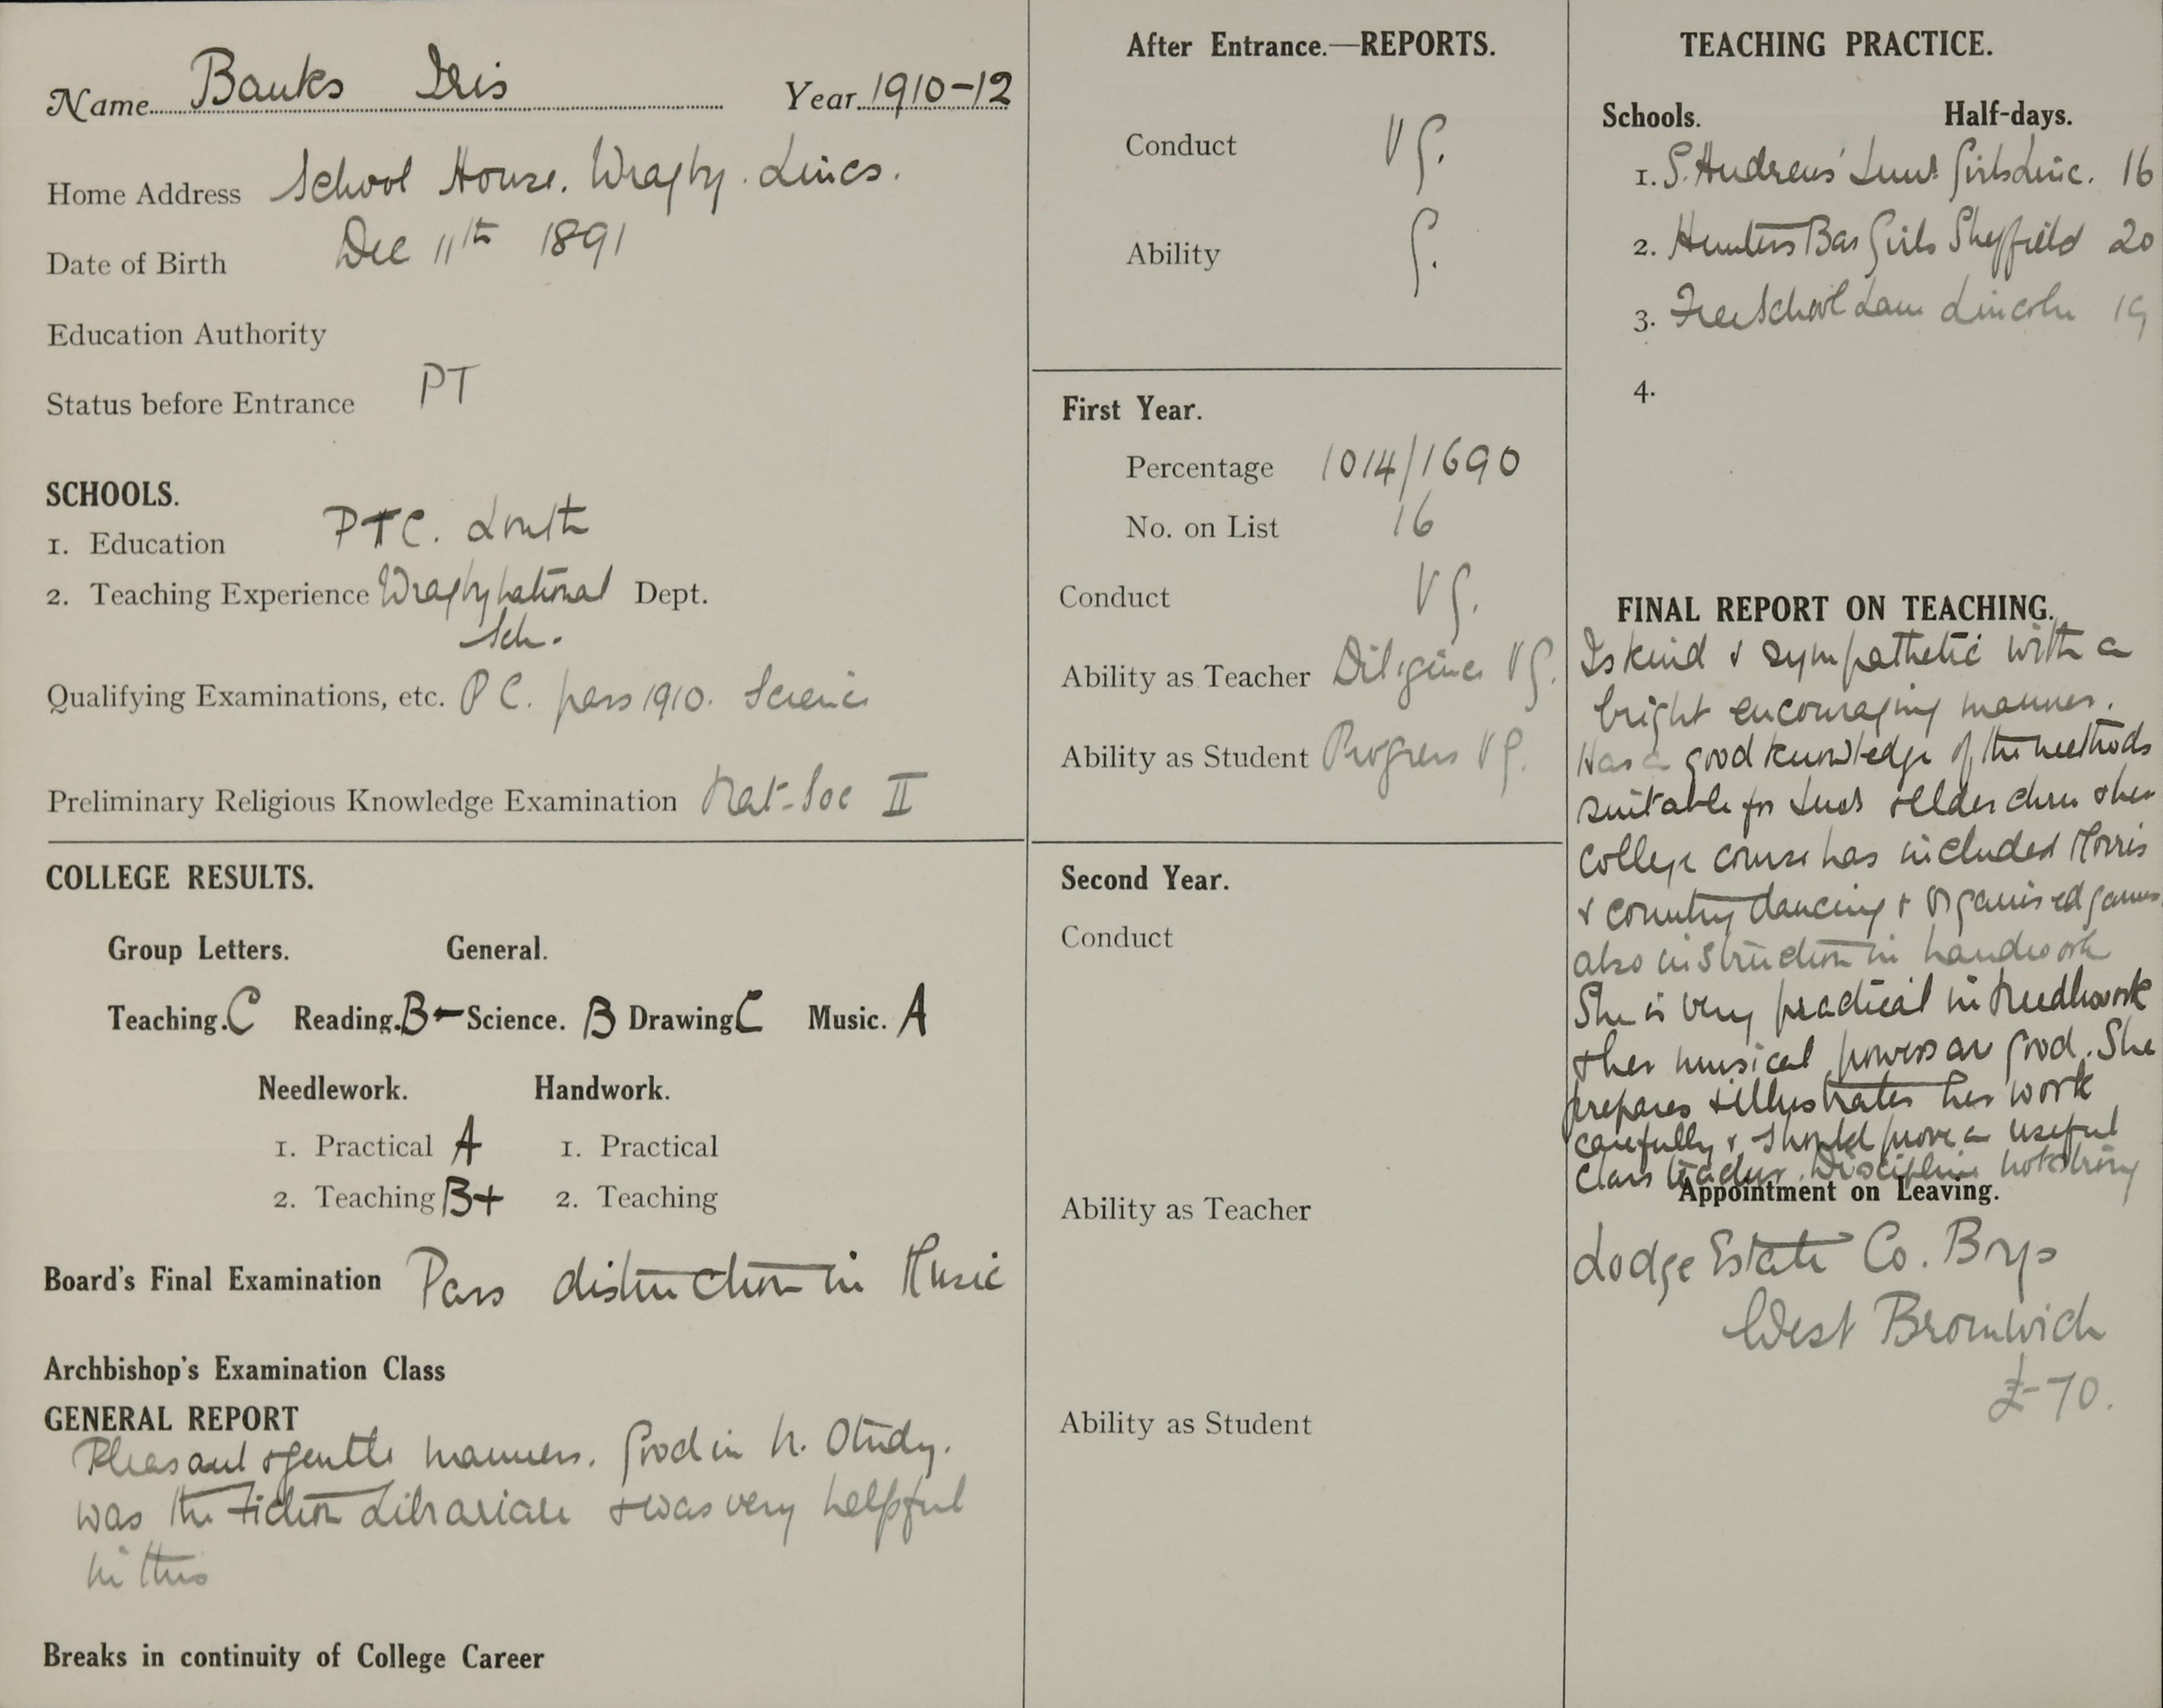 Name Banks Iris Year 1910-12
Home Address School House. Wragby. Lincs.
Date of Birth Dec 11th 1891
Education Authority
Status before Entrance PT
SCHOOLS.
1. Education PTC. Louth
2. Teaching Experience Wragby National Dept.
Sch.
Qualifying Examinations, etc. P C. pass 1910. Science
Preliminary Religious Knowledge Examination Nat-Soc II
COLLEGE RESULTS.
Group Letters. General.
Teaching. C Reading. B- Science. B Drawing C Music. A
Needlework. Handwork.
1. Practical A 1. Practical
2. Teaching B+ 2. Teaching
Board's Final Examination Pass distinction in Music
Archbishop's Examination Class
GENERAL REPORT
Pleasant & gentle manners. Good in N. Study.
was the Fiction Librarian & was very helpful
in this
Breaks in continuity of College Career
After Entrance.—REPORTS.
Conduct VG.
Ability G.
First Year.
Percentage 1014/1690
No. on List 16
Conduct VG.
Ability as Teacher Diligence VG.
Ability as Student Progress VG.
Second Year.
Conduct
Ability as Teacher
Ability as Student
TEACHING PRACTICE.
Schools. Half-days.
1. S. Andrews' Girls Linc. 16
2. Hunters Bar Girls Sheffield 20
3. Free School Lane Lincoln 19
4.
FINAL REPORT ON TEACHING.
Is kind & sympathetic with a
bright encouraging manner.
Has a good knowledge of the methods
suitable for & older chn & her
College course has included Morris
& country dancing & organised games
also instruction in handwork
She is very practical in Needlework
& her musical powers are good. She
prepares & illustrates her work
carefully & should prove a useful
Class teacher. Discipline not strong
Appointment on Leaving.
Lodge Estate Co. Boys
West Bromwich
£70.